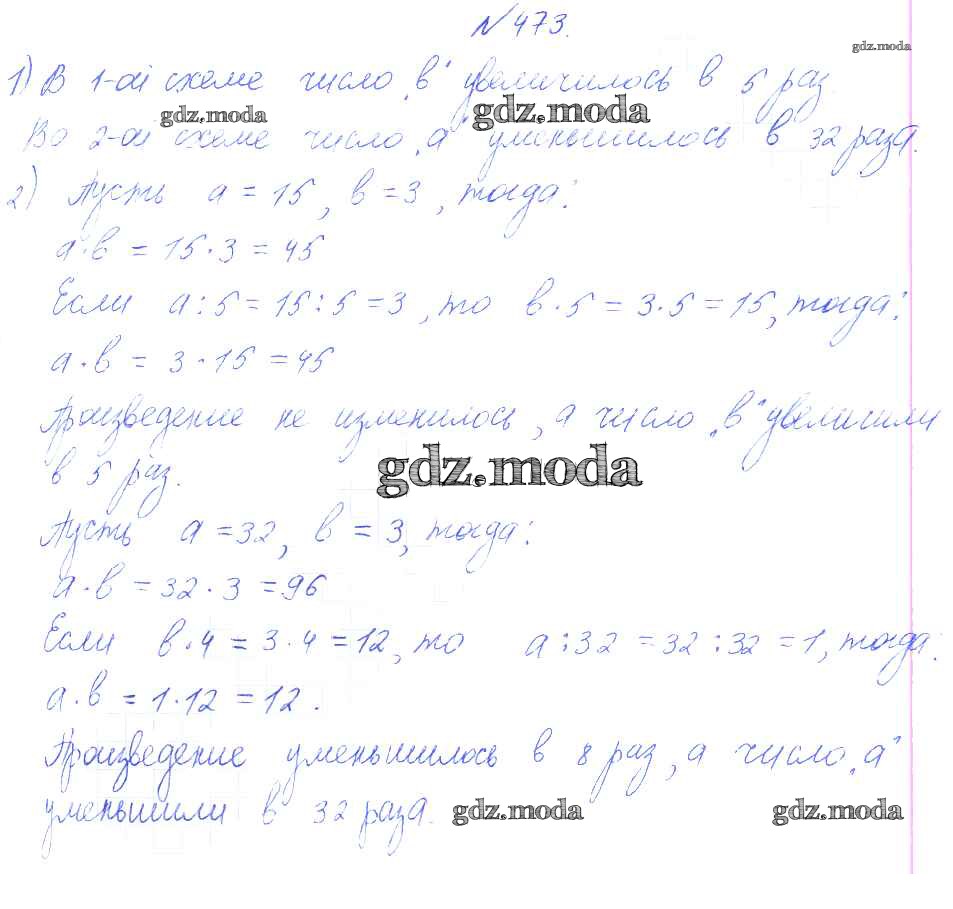 № 473.
gdz.moda
1) В 1-ой схеме число „в" увеличилось в 5 раз.
gdz.moda gdz.moda
Во 2-ой схеме число „а" уменьшилось в 32 раза.
2) Пусть а = 15, в = 3, тогда:
а · в = 15 · 3 = 45
Если а : 5 = 15 : 5 = 3, то в · 5 = 3 · 5 = 15, тогда:
а · в = 3 · 15 = 45
Произведение не изменилось, а число „в" увеличили
в 5 раз.
gdz.moda
Пусть а = 32, в = 3, тогда:
а · в = 32 · 3 = 96
Если в · 4 = 3 · 4 = 12, то а : 32 = 32 : 32 = 1, тогда:
а · в = 1 · 12 = 12.
Произведение уменьшилось в 8 раз, а число „а"
уменьшили в 32 раза.
gdz.moda gdz.moda